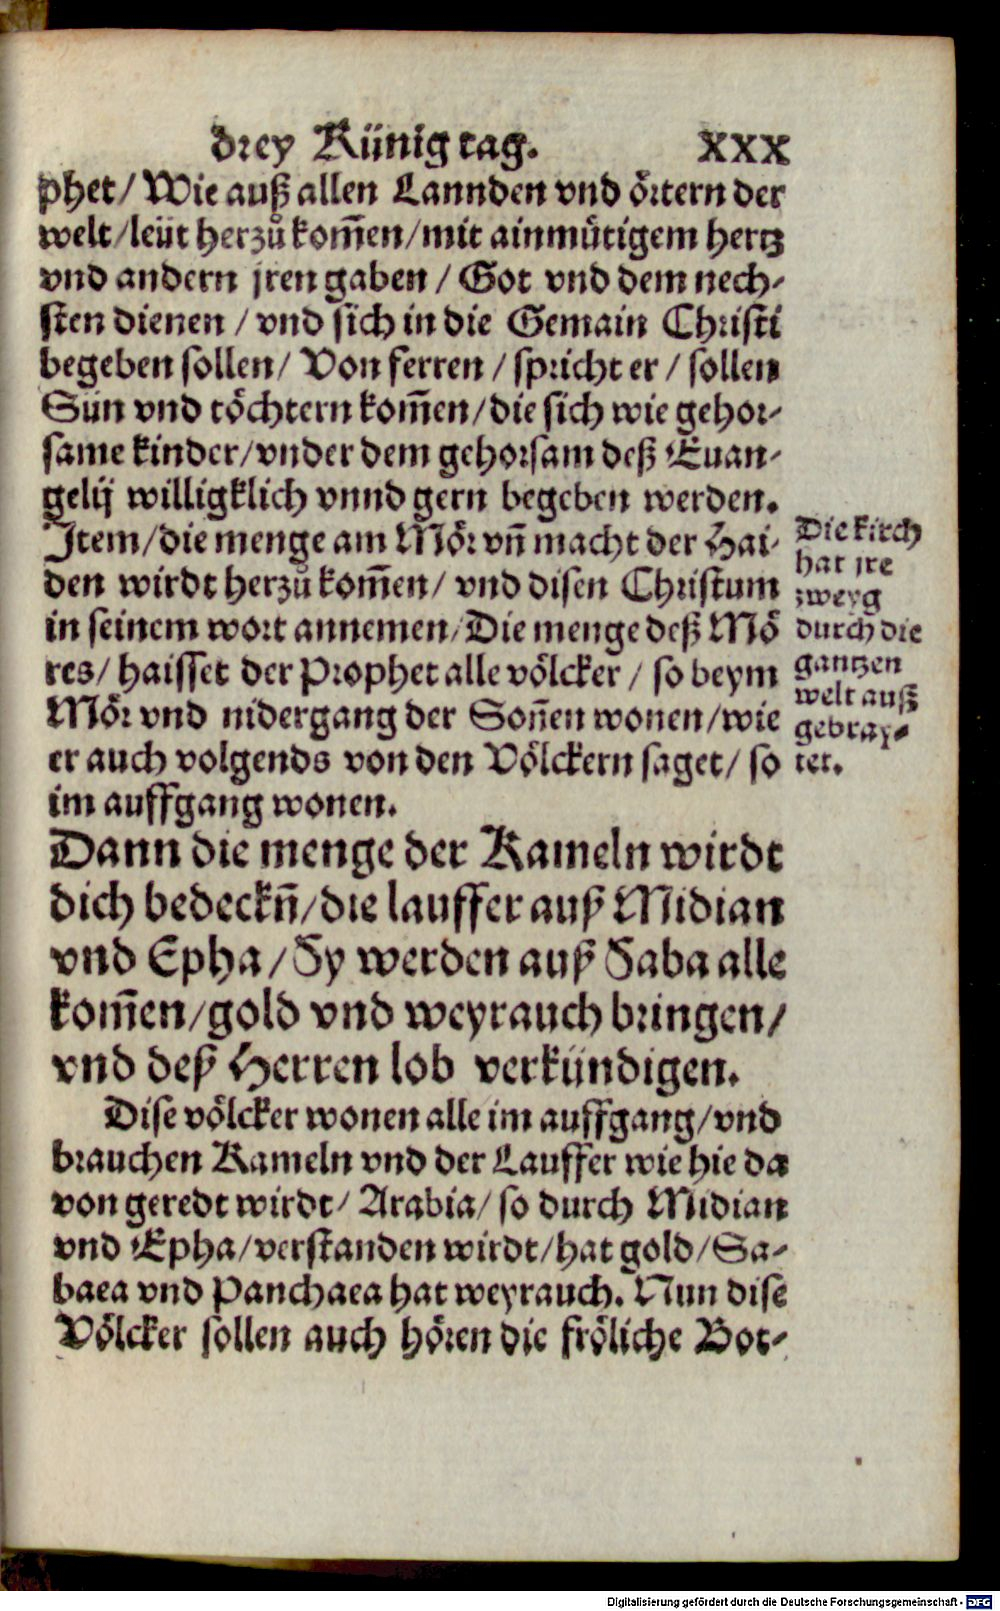 drey Künig tag. XXX
phet/ Wie auß allen Lannden vnd oͤrtern der
welt/leüt herzuͦ kom̃en/mit ainmuͤtigem hertz
vnd andern jren gaben / Got vnd dem nech-
sten dienen / vnd sich in die Gemain Christi
begeben sollen/ Von ferren / spricht er / sollen
Sün vnd toͤchtern kom̃en/die sich wie gehor-
same kinder/vnder dem gehorsam deß Euan-
gelij willigklich vnnd gern begeben werden.
Item/die menge am Moͤr vñ macht der Hai-
den wirdt herzuͦ kom̃en/ vnd disen Christum
in seinem wort annemen/Die menge deß Moͤ
res/ haisset der Prophet alle voͤlcker / so beym
Moͤr vnd nidergang der Soñen wonen/wie
er auch volgends von den Voͤlckern saget/ so
im auffgang wonen.
Die kirch
hat jre
zweyg
durch die
gantzen
welt auß
gebray-
tet.
Dann die menge der Kameln wirdt
dich bedeckñ/die lauffer auß Midian
vnd Epha/Sy werden auß Saba alle
kom̃en/gold vnd weyrauch bringen/
vnd deß Herren lob verkündigen.
Dise voͤlcker wonen alle im auffgang/vnd
brauchen Kameln vnd der Lauffer wie hie da
von geredt wirdt/ Arabia/ so durch Midian
vnd Epha/verstanden wirdt/hat gold/Sa-
baea vnd Panchaea hat weyrauch. Nun dise
Voͤlcker sollen auch hoͤren die froͤliche Bot-
Digitalisierung gefördert durch die Deutsche Forschungsgemeinschaft - DFG